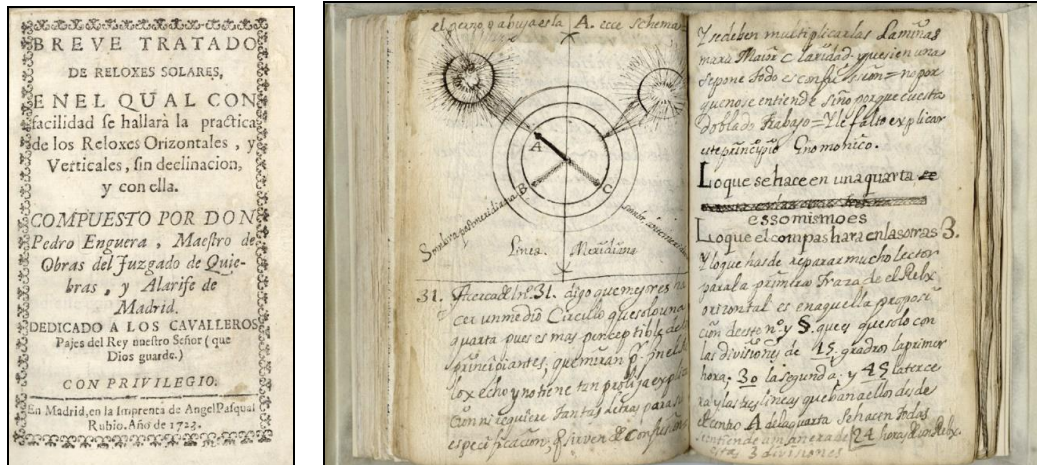 BREVE TRATADO
DE RELOXES SOLARES,
EN EL QUAL CON
facilidad se hallarà la practica
de los Reloxes Orizontales, y
Verticales, sin declinacion,
y con ella.
COMPUESTO POR DON
Pedro Enguera, Maestro de
Obras del Juzgado de Quie-
bras, y Alarife de
Madrid.
DEDICADO A LOS CAVALLEROS
Pajes del Rey nuestro Señor (que
Dios guarde.)
CON PRIVILEGIO.
En Madrid, en la Imprenta de Angel Pasqual
Rubio. Año de 1723.
A. ecce Schema
A
B
C
Sombra postmeridiana
Linea Meridiana
31. Acerca del nº. 31. digo que mejor es ha
cer un medio Circulo que solo una
quarta pues es mas perceptible de
principiantes, que miran
lox echo y no tiene tan prolija explic
especificacion, sirven de Confusion
Y se deben multiplicar las Laminas
para Maior Claridad, pues en una
se pone todo es confusion = no por
que no se entiende sino porque cuesta
doblado trabajo = Y le falto explicar
este principio Gnomonico.
Lo que se hace en una quarta
esso mismo es
Lo que el compas hara en las otras 3.
Y lo que has de reparar mucho lector
para la primera Traza de el Relox
orizontal es en aquella proposi
cion de este nº. y §. que es que solo con
las divisiones de 15. grados la primer
hora; 30 la segunda; y 45 la terce
ra y las tres lineas que ban a ellos desde
el centro A de la quarta se hacen todas
24 horas de un Relox.
3 divisiones